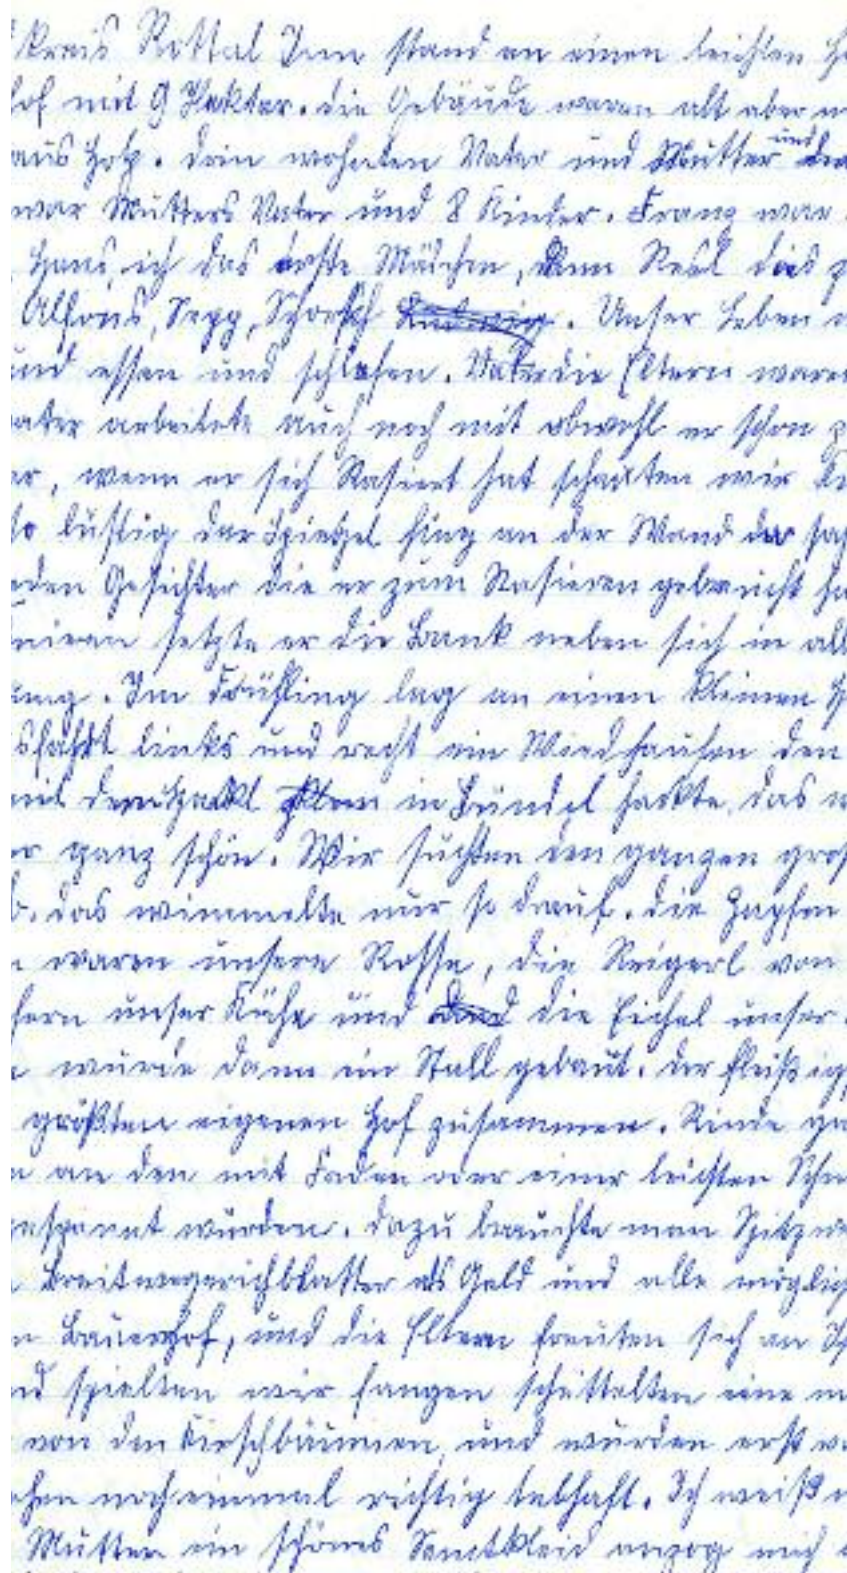 kreis Rottal Inn stand an einen leichten H
of mit 9 Hektar. die Gebäude waren alt aber
aus Holz. drin wohnten Vater und Mutter und
war Mutters Vater und 8 Kinder. Franz war
Hans, ich das erste Mädchen, dann Resl dies
Alfons, Sepp, Schorsch Ludwig. Unser Leben
und essen und schlafen. Vater die Eltern waren
ater arbeitete auch noch mit obwohl er schon
er, wenn er sich Rasiert hat schauten wir
so lustig der Spiegel hing an der Wand da sa
eden Gesichter die er zum Rasieren gebraucht ha
nieren setzte er die Bank neben sich in all
ung. Im Frühling lag an einen kleinen
sfahrt links und recht ein Wiedhaufen den
mit dem Hackl in Bündel hackte, das
er ganz schön. Wir suchten den ganzen groß
b. das wimmelte nur so drauf. die Zapfen
n waren unsere Rosse, die Reigerl von
fern unser Kühe und die Eichel unser
e wurde dann ein Stall gebaut. der fleißig
größten eigenen Hof zusammen. Rinde ga
n an den mit Faden oder einer leichten Schn
espannt wurden. dazu brauchte man Spitzwe
Breitwegerichblatter als Geld und alle möglig
n Bauernhof, und die Eltern freuten sich an
nd spielten wir fangen schüttelten eine
von den Kirschbäumen, und wurden erst
hen noch einmal richtig lebhaft. Ich weiß
Mutter ein schönes Samtkleid anzog mich